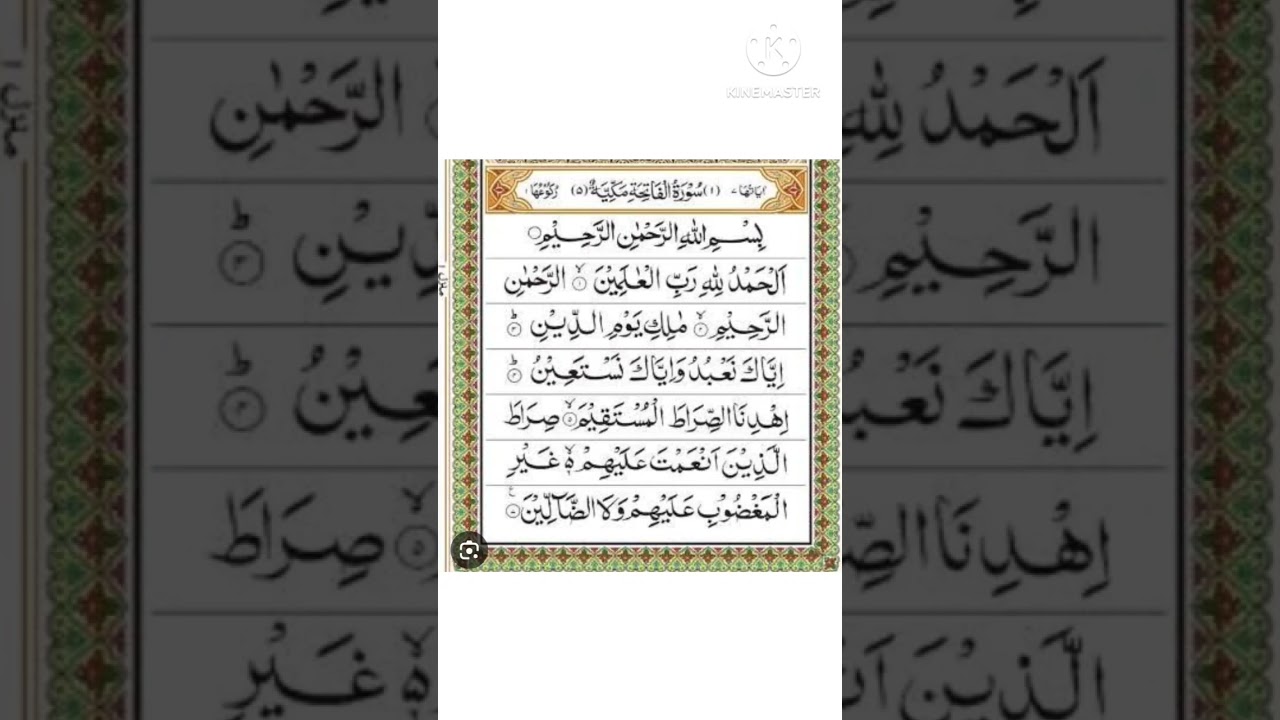 KINEMASTER
اٰيَاتُهَا ٧ (١) سُوْرَةُ الْفَاتِحَةِ مَكِّيَّةٌ (٥) رُكُوْعُهَا ١
بِسْمِ اللهِ الرَّحْمٰنِ الرَّحِيْمِ
اَلْحَمْدُ لِلّٰهِ رَبِّ الْعٰلَمِيْنَ ۙ١ الرَّحْمٰنِ
الرَّحِيْمِ ۙ٢ مٰلِكِ يَوْمِ الدِّيْنِ ؕ٣
اِيَّاكَ نَعْبُدُ وَاِيَّاكَ نَسْتَعِيْنُ ؕ٤
اِهْدِنَا الصِّرَاطَ الْمُسْتَقِيْمَ ۙ٥ صِرَاطَ
الَّذِيْنَ اَنْعَمْتَ عَلَيْهِمْ ۙ۬ۦ غَيْرِ
الْمَغْضُوْبِ عَلَيْهِمْ وَلَا الضَّآلِّيْنَ